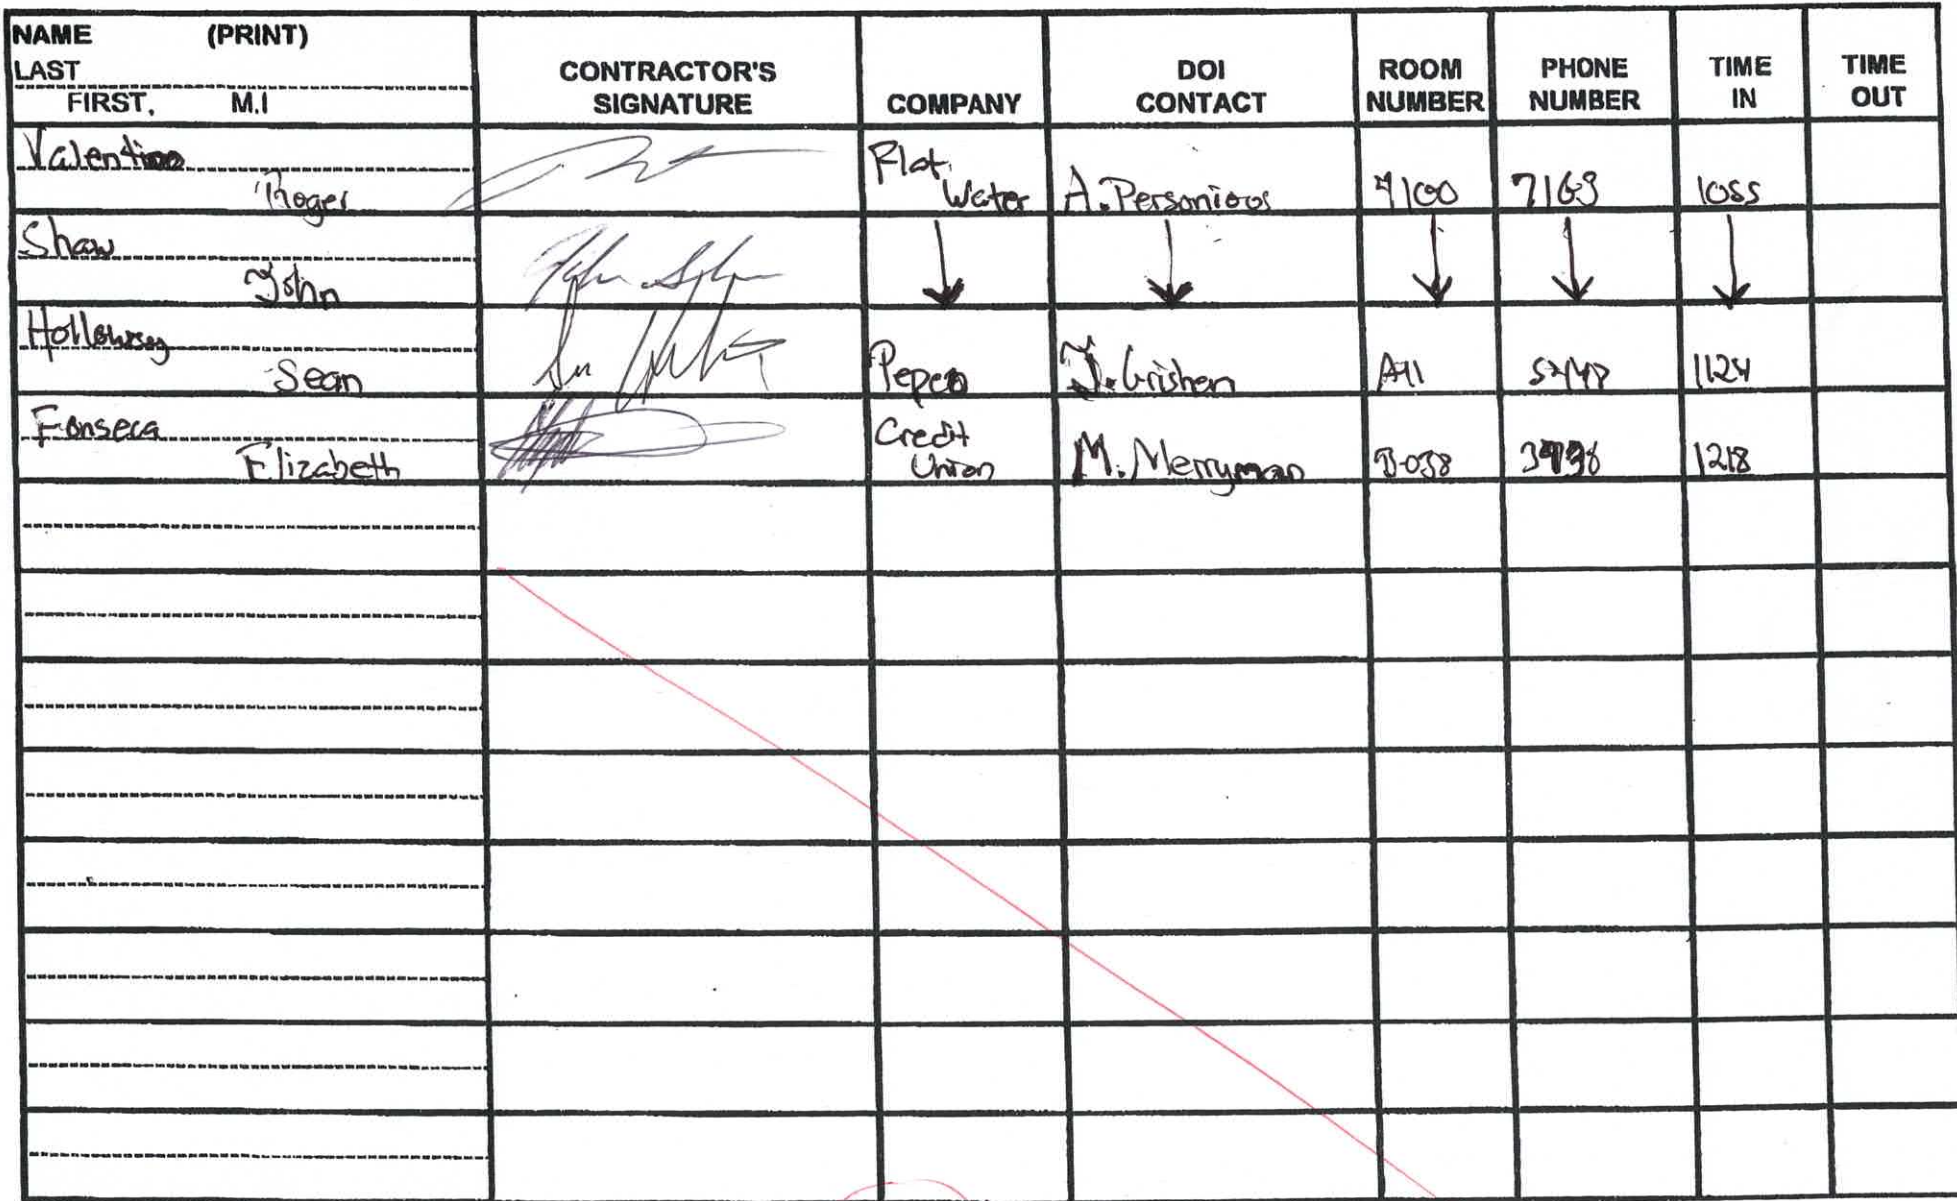 NAME (PRINT)
LAST
FIRST, M.I
CONTRACTOR'S
SIGNATURE
COMPANY
DOI
CONTACT
ROOM
NUMBER
PHONE
NUMBER
TIME
IN
TIME
OUT
Valentino
Roger
Flat
Water
A. 
7100
7163
1055
Shaw
John
Holloway
Sean
Pepco
J. 
1124
Fonseca
Elizabeth
Credit
Union
M. Merryman
B-038
1218